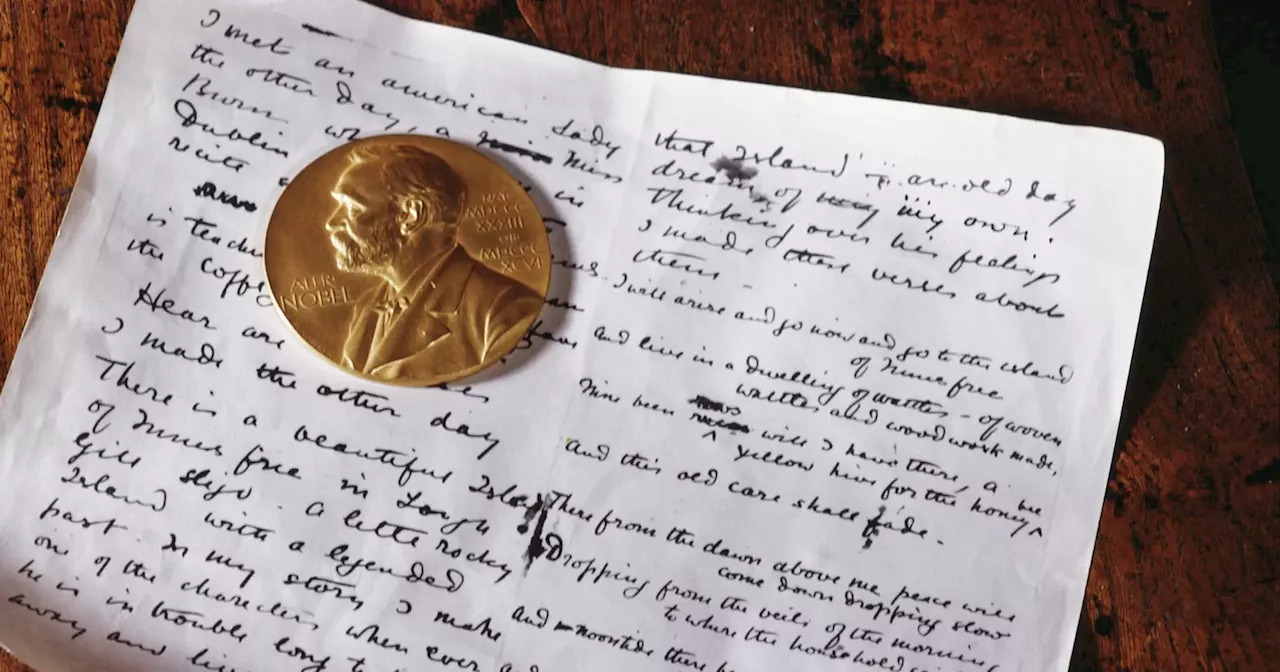 I met an american Lady
the other day, a Miss
Burn wh
Dublin in
recite
is teach
the coffe
Hear are
I made the other day
There is a beautiful Island
of Innis free in Lough
Gill Sligo. A little rocky
Island with a legended
past. In my story I make
one of the characters when ever
he is in trouble long to
away and li
that Island an old day
dream of my own.
Thinking over his feelings
I made these verses about
them
I will arise and go now and go to the island
of Innis free
and live in a dwelling of wattles - of woven
wattles and wood work made,
Nine bean rows will I have there, a
yellow hive for the honey bee
And this old care shall fade.
There from the dawn above me peace will
come down dropping slow
Dropping from the veils of the morning
to where the household
and noontide there be
ALFR.
NOBEL
NAT.
MDCCC
XXXIII
OB.
MDCCC
XCVI